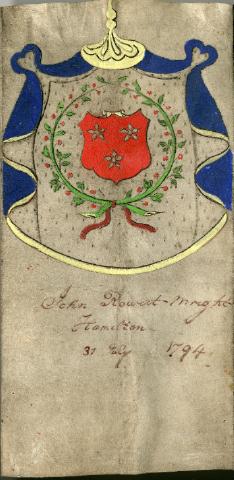 John Rowat-Wright
Hamilton
31 July 1794